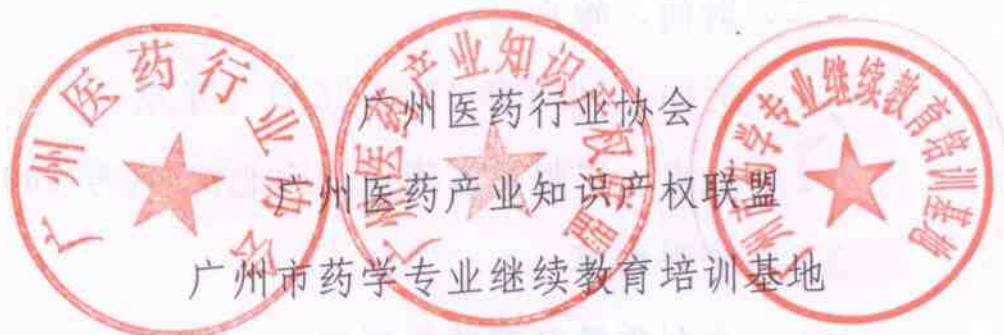 广州医药行业协会
广州医药产业知识产权联盟
广州市药学专业继续教育培训基地
广州医药行业协会
广州医药产业知识产权联盟
广州市药学专业继续教育培训基地